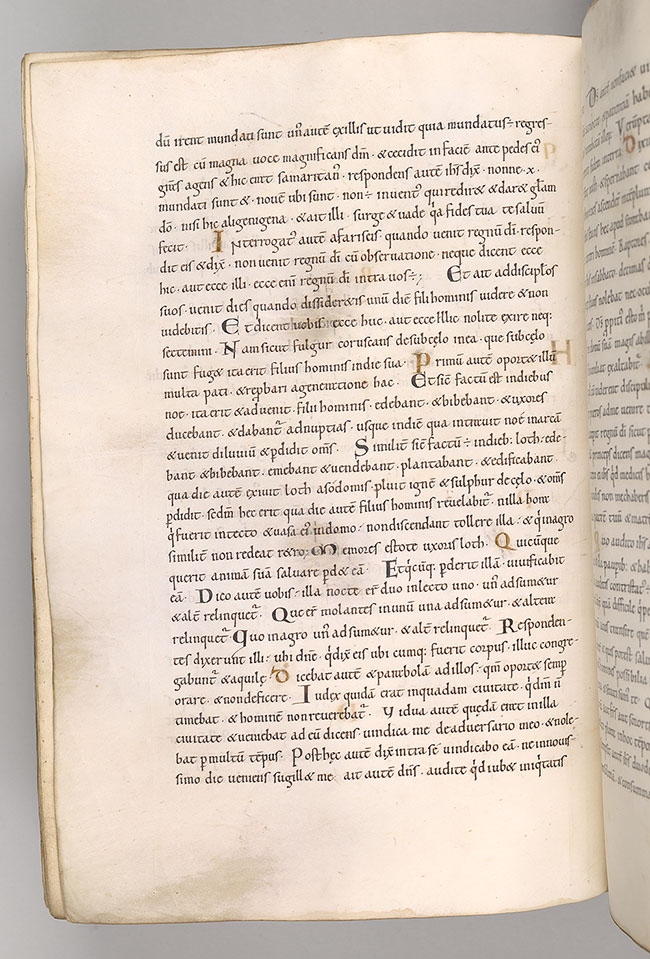 dū irent mundati sunt un᷒ autē exillis ut vidit quia mundatus÷ regres-
sus est cū magna uoce magnificans dm̄ · & cecidit infaciē ante pedes ei᷒
gr̄as agens & hic erat samaritan᷒ · respondens autē ihs dix̄ · nonne · x ·
mundati sunt & nouē ubi sunt · non÷ inuent᷒ quirediret & daret gl̄am
dō · nisi hic aligenigena · & ait illi · surge & uade qa fides tua te saluū
fecit · Interrogat᷒ autē afariseis · quando uenit regnū dī · respon-
dit eis & dix̄ · non uenit regnū dī cū obseruatione · neque dicent ecce
hic · aut ecce illic · ecce enī regnū dī intra uos÷ · Et ait addiscip̄los
suos · uenit dies quando desideretis unū diē filii hominis uidere & non
uidebitis · Et dicent uobis · ecce huc · aut ecce illuc nolite exire neq:
sectemini · Nam sicut fulgur coruscans desubcęlo inea · que subcęlo
sunt fug& ita erit filius hominis indie sua · Primū autē oport& illū
multa pati · & rep̄bari ageneratione hac · Et sic̄ factū est indiebus
noe · ita erit & aduenit · filii hominis · edebant · & bibebant · & uxores
ducebant · & dabant᷒ adnuptias · usque indiē qua intrauit noe inarcā
& uenit diluuiū & p̄didit om̄s · Similit̄ sic̄ factū÷ indieb: loth · ede-
bant & bibebant · emebant & uendebant · plantabant · & edificabant ·
qua die autē exiuit loth asodomis · pluit ignē & sulphur decęlo · & om̄s
p̄didit · sedm̄ hec erit qua die autē filius hominis reuelabit᷒ · nilla hora
q̄fuerit intecto & uasa ei᷒ indomo · nondiscendant tollere illa · & q̄ inagro
similit̄ non redeat retro · Memores estote uxoris loth · Quicūque
querit animā suā saluare p̄det eā · Et q̄cūq; p̄derit illā · uiuificabit
eā · Dico autē uobis · illa nocte er̄ duo inlecto uno · un᷒ adsumetur
& alt̄ relinquet᷒ · Que er̄ molantes inunū una adsumetur · & altera
relinquet᷒ · Quo inagro un᷒ adsumetur · & alt̄ relinquet᷒ · Responden-
tes dixerunt illi · ubi dn̄e · q̄ dix̄ eis ubi cumq; fuerit corpus · illuc congre-
gabunt᷒ & aquilę · Dicebat autē & parabolam ad illos · qm̄ oport& semp̄
orare · & nondeficere · Iudex quidā erat inquadam ciuitate · q̄ dm̄ n̄
timebat · & hominē nonreuerebat᷒ · Vidua autē quędā erat inilla
ciuitate & ueniebat ad eū dicens · uindica me deaduersario meo · & nole-
bat p̄ multū tēpus · Posthęc autē dix̄ intra sē uindicabo eā · ne innouis-
simo die ueniens sugillet me · ait autē dn̄s · audite q̄d iudex iniq̄tatis